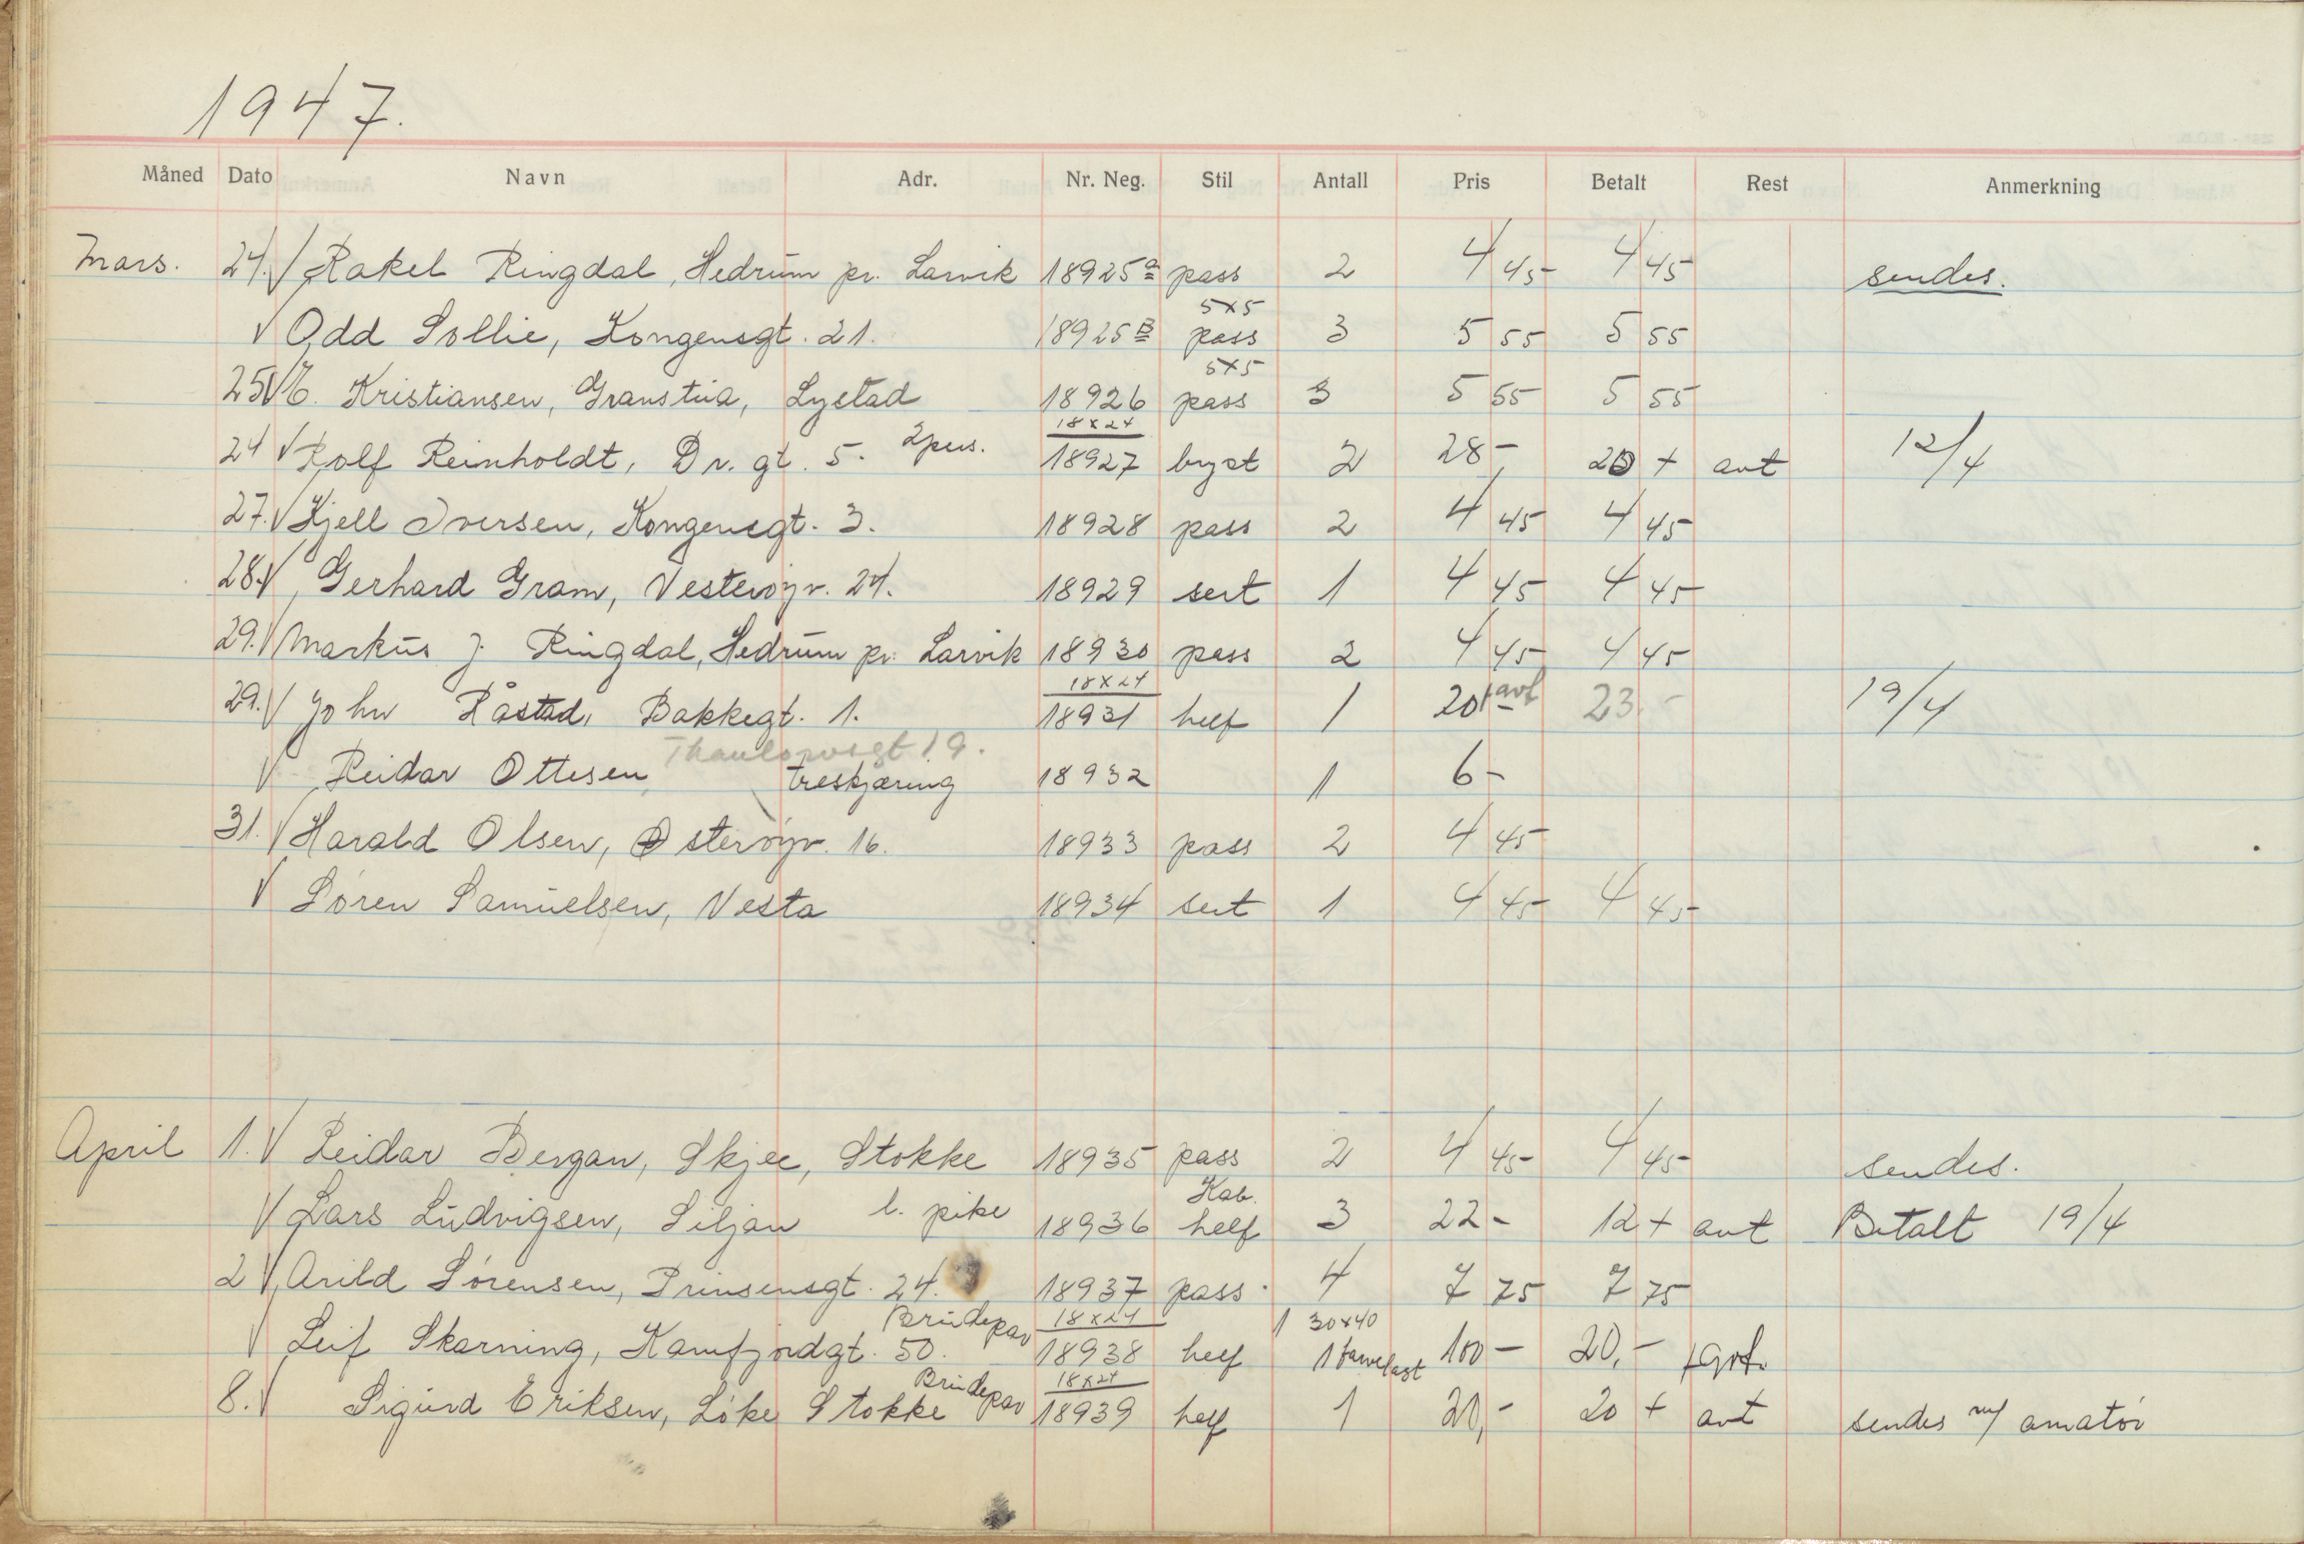 1947.
Måned Dato Navn Adr. Nr. Neg. Stil Antall Pris Betalt Rest Anmerkning
Mars. 24. √ Rakel Ringdal, Hedrum pr. Larvik 18925a pass 2 4 45 4 45 sendes.
5x5
√ Odd Sollie, Kongensgt. 21. 18925B pass 3 5 55 5 55
5x5
25 √ E. Kristiansen, Granstua, Lystad 18926 pass 3 5 55 5 55
18x24
24 √ Rolf Reinholdt, Dr. gt. 5. 2 pers. 18927 bryst 2 28 - 20 + avt 12/4
27. √ Kjell Iversen, Kongensgt. 3. 18928 pass 2 4 45 4 45
28. √ Gerhard Gram, Vesterøyv. 24. 18929 sert 1 4 45 4 45
29. √ Markus J. Ringdal, Hedrum pr. Larvik 18930 pass 2 4 45 4 45
18x24
29. √ John Råstad, Bakkegt. 1. 18931 helf 1 20 + avt 23.- 19/4
Thaulowsgt 19.
√ Reidar Ottesen, treskjæring 18932 1 6 -
31. √ Harald Olsen, Østerøyv. 16. 18933 pass 2 4 45
√ Søren Samuelsen, Vesta 18934 sert 1 4 45 4 45
April 1. √ Reidar Bergan, Skjee, Stokke 18935 pass 2 4 45 4 45 sendes.
Kab.
√ Lars Ludvigsen, Siljan l. pike 18936 helf 3 22 - 12 + avt Betalt 19/4
2 √ Arild Sørensen, Prinsensgt. 24. 18937 pass. 4 7 75 7 75
Brudepar 18x24 1 30x40
√ Leif Skarning, Kamfjordgt. 50. 18938 helf 1 100 - 20,-
Brudepar 18x24
8. √ Sigurd Eriksen, Løke Stokke 18939 helf 1 20,- 20 + avt sendes m/ amatør